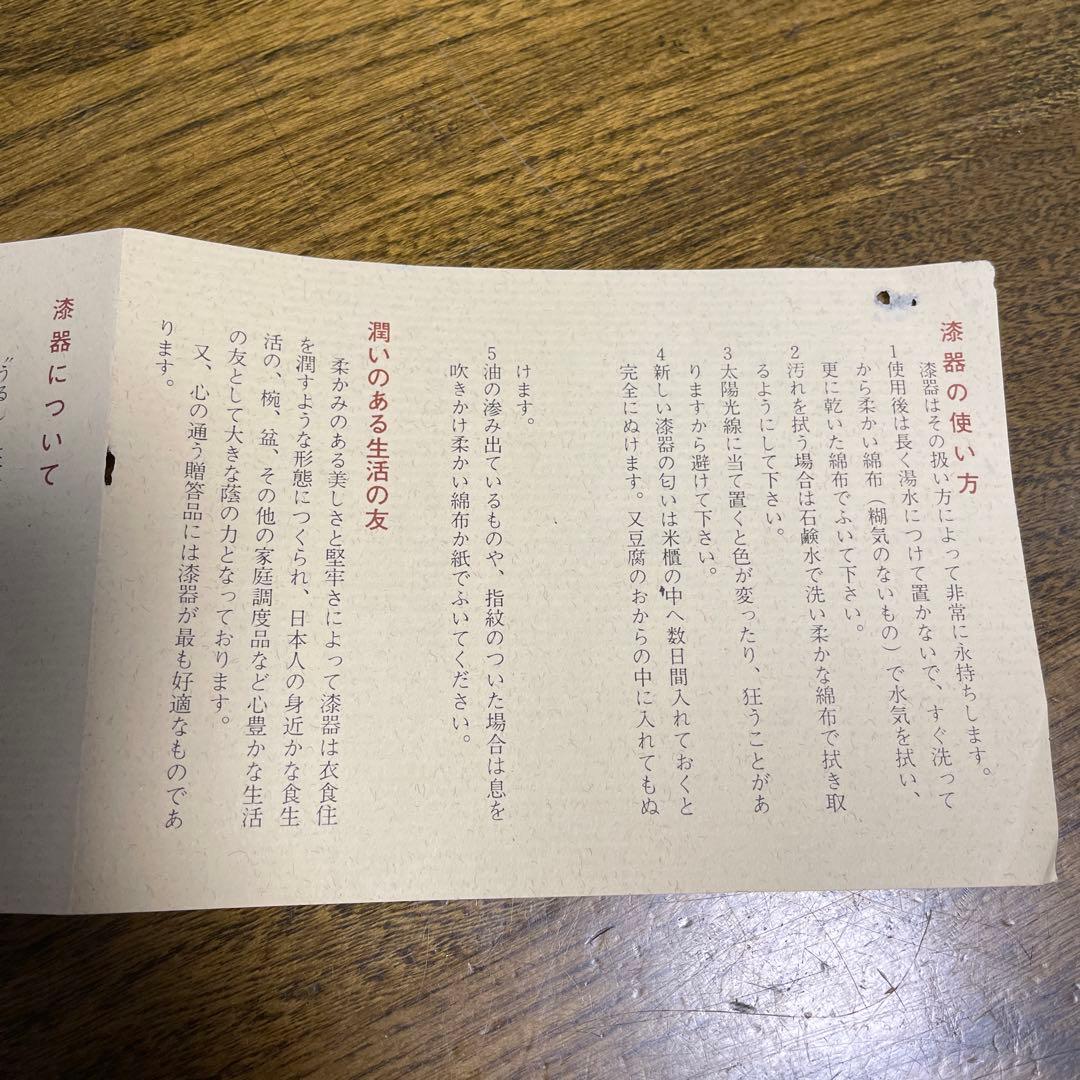 漆器の使い方
漆器はその扱い方によって非常に永持ちします。
1使用後は長く湯水につけて置かないで、すぐ洗って
から柔かい綿布（糊気のないもの）で水気を拭い、
更に乾いた綿布でふいて下さい。
2汚れを拭う場合は石鹸水で洗い柔かな綿布で拭き取
るようにして下さい。
3太陽光線に当て置くと色が変ったり、狂うことがあ
りますから避けて下さい。
4新しい漆器の匂いは米櫃の中へ数日間入れておくと
完全にぬけます。又豆腐のおからの中に入れてもぬ
けます。
5油の滲み出ているものや、指紋のついた場合は息を
吹きかけ柔かい綿布か紙でふいてください。
潤いのある生活の友
柔かみのある美しさと堅牢さによって漆器は衣食住
を潤すような形態につくられ、日本人の身近かな食生
活の、椀、盆、その他の家庭調度品など心豊かな生活
の友として大きな蔭の力となっております。
又、心の通う贈答品には漆器が最も好適なものであ
ります。
漆器について
“うるし